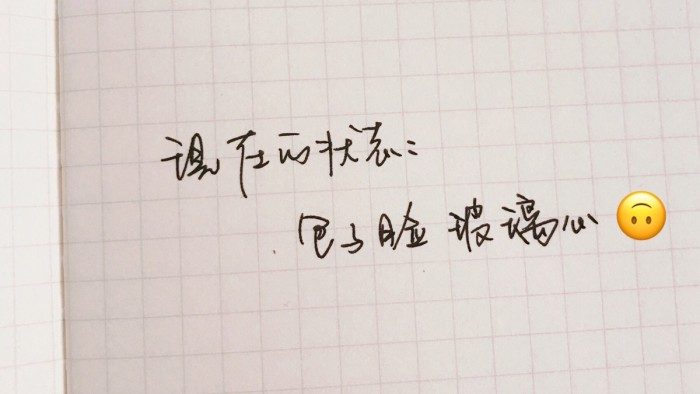 现在的状态:
包子脸 玻璃心 🙃